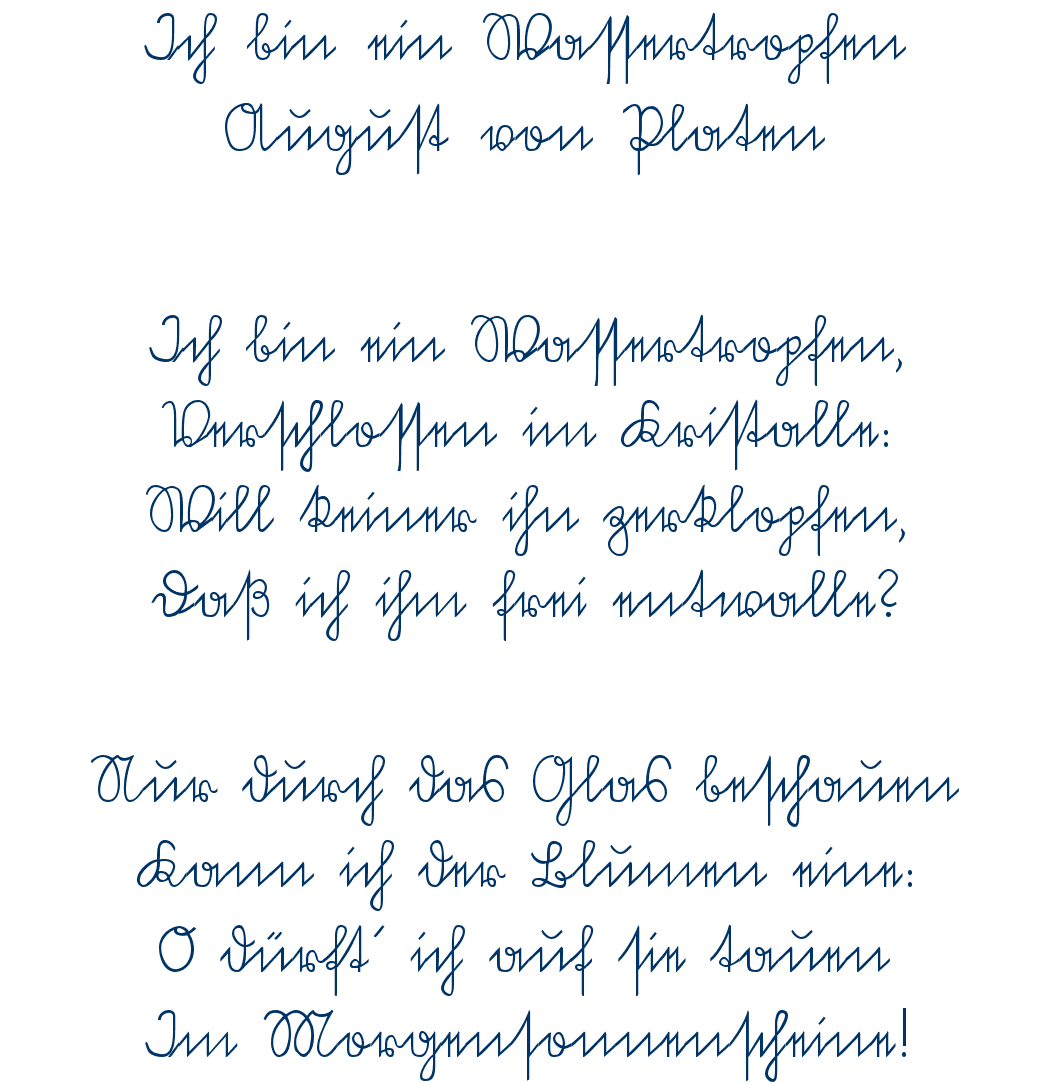 Ich bin ein Wassertropfen
August von Platen
Ich bin ein Wassertropfen,
Verschlossen im Kristalle:
Will keiner ihn zerklopfen,
Daß ich ihm frei entwalle?
Nur durch das Glas beschauen
Kann ich der Blumen eine:
O dürft´ ich auf sie tauen
Im Morgensonnenscheine!